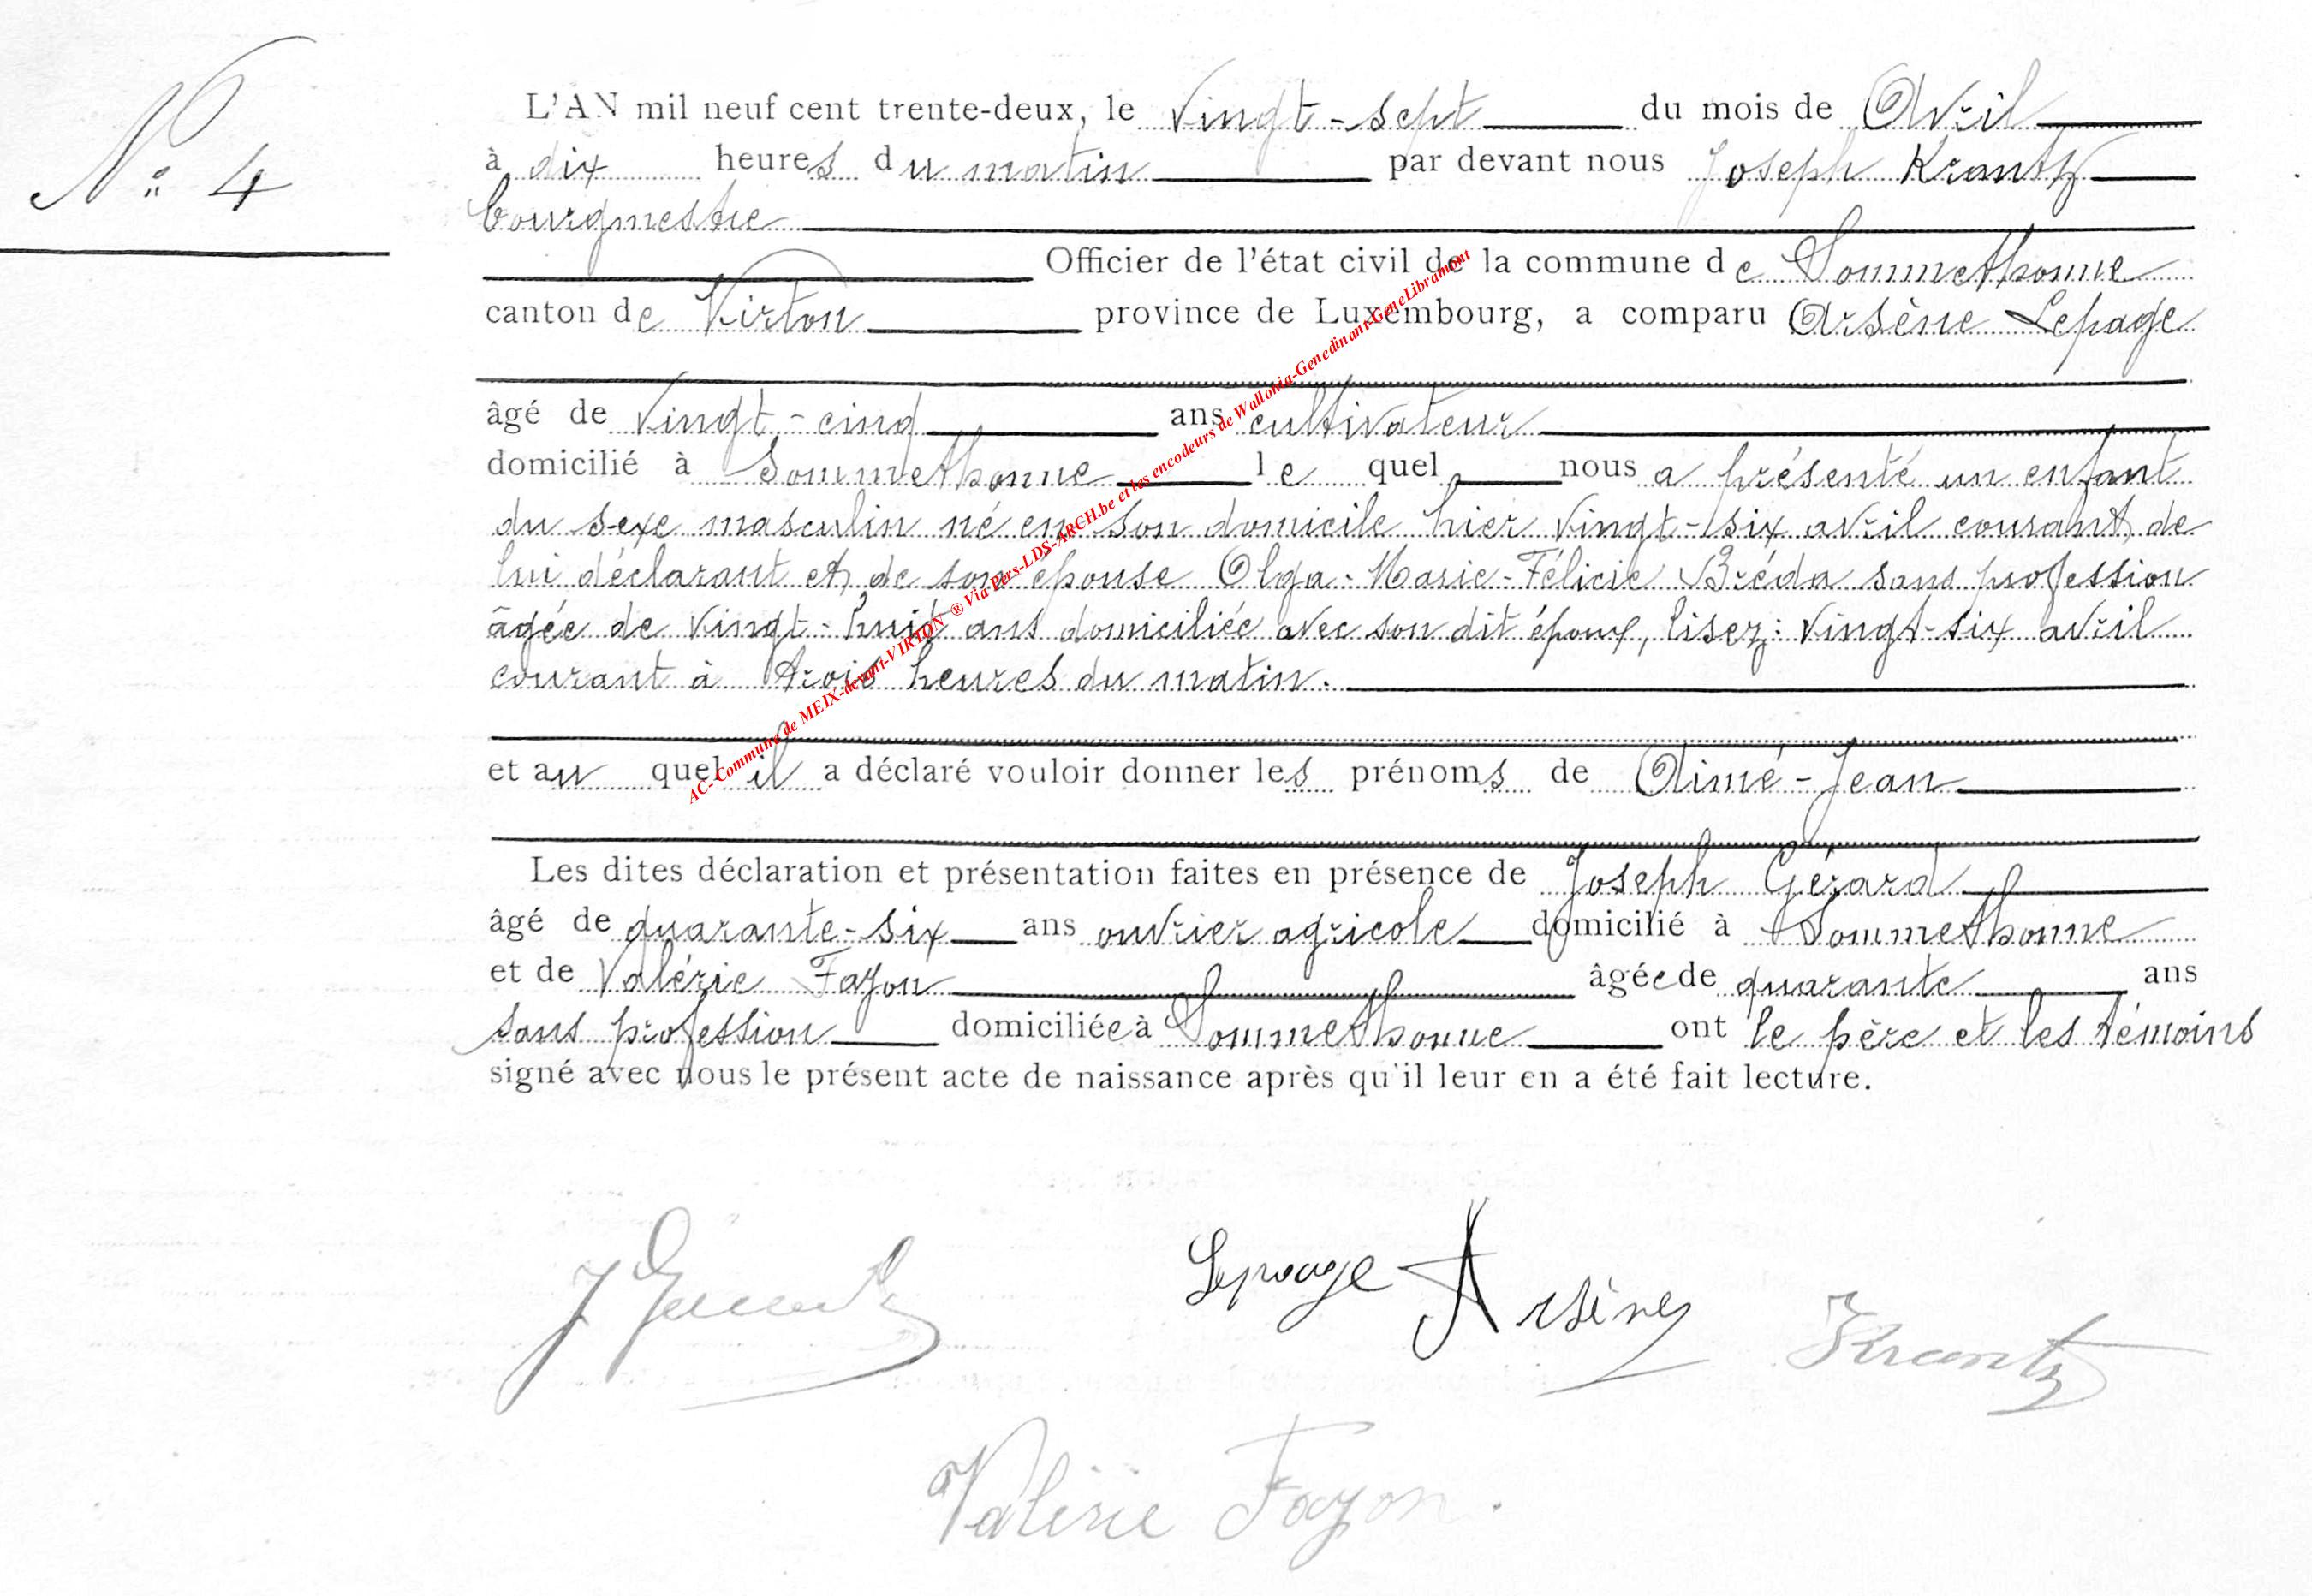 N° 4
L'AN mil neuf cent trente-deux, le vingt-sept du mois de Avril
à dix heures du matin par devant nous Joseph Krantz
bourgmestre
Officier de l'état civil de la commune de Sommethonne
canton de Virton province de Luxembourg, a comparu Arsène Lepage
âgé de vingt-cinq ans cultivateur
domicilié à Sommethonne le quel nous a présenté un enfant
du sexe masculin né en son domicile hier vingt-six avril courant, de
lui déclarant et de son épouse Olga-Marie-Félicie Bréda sans profession
âgée de vingt-huit ans domiciliée avec son dit époux, lisez: vingt-six avril
courant à trois heures du matin.
et au quel il a déclaré vouloir donner les prénoms de Aimé-Jean
Les dites déclaration et présentation faites en présence de Joseph Gérard
âgé de quarante-six ans ouvrier agricole domicilié à Sommethonne
et de Valérie Fazon âgée de quarante ans
sans profession domiciliée à Sommethonne ont le père et les témoins
signé avec nous le présent acte de naissance après qu'il leur en a été fait lecture.
AC-Commune de MEIX-devant-VIRTON ® Via Pers-LDS-ARCH.be et les encodeurs de Wallonia-Genedinant-GeneLibramont
J Gérard
Lepage Arsène
Krantz
Valérie Fazon.